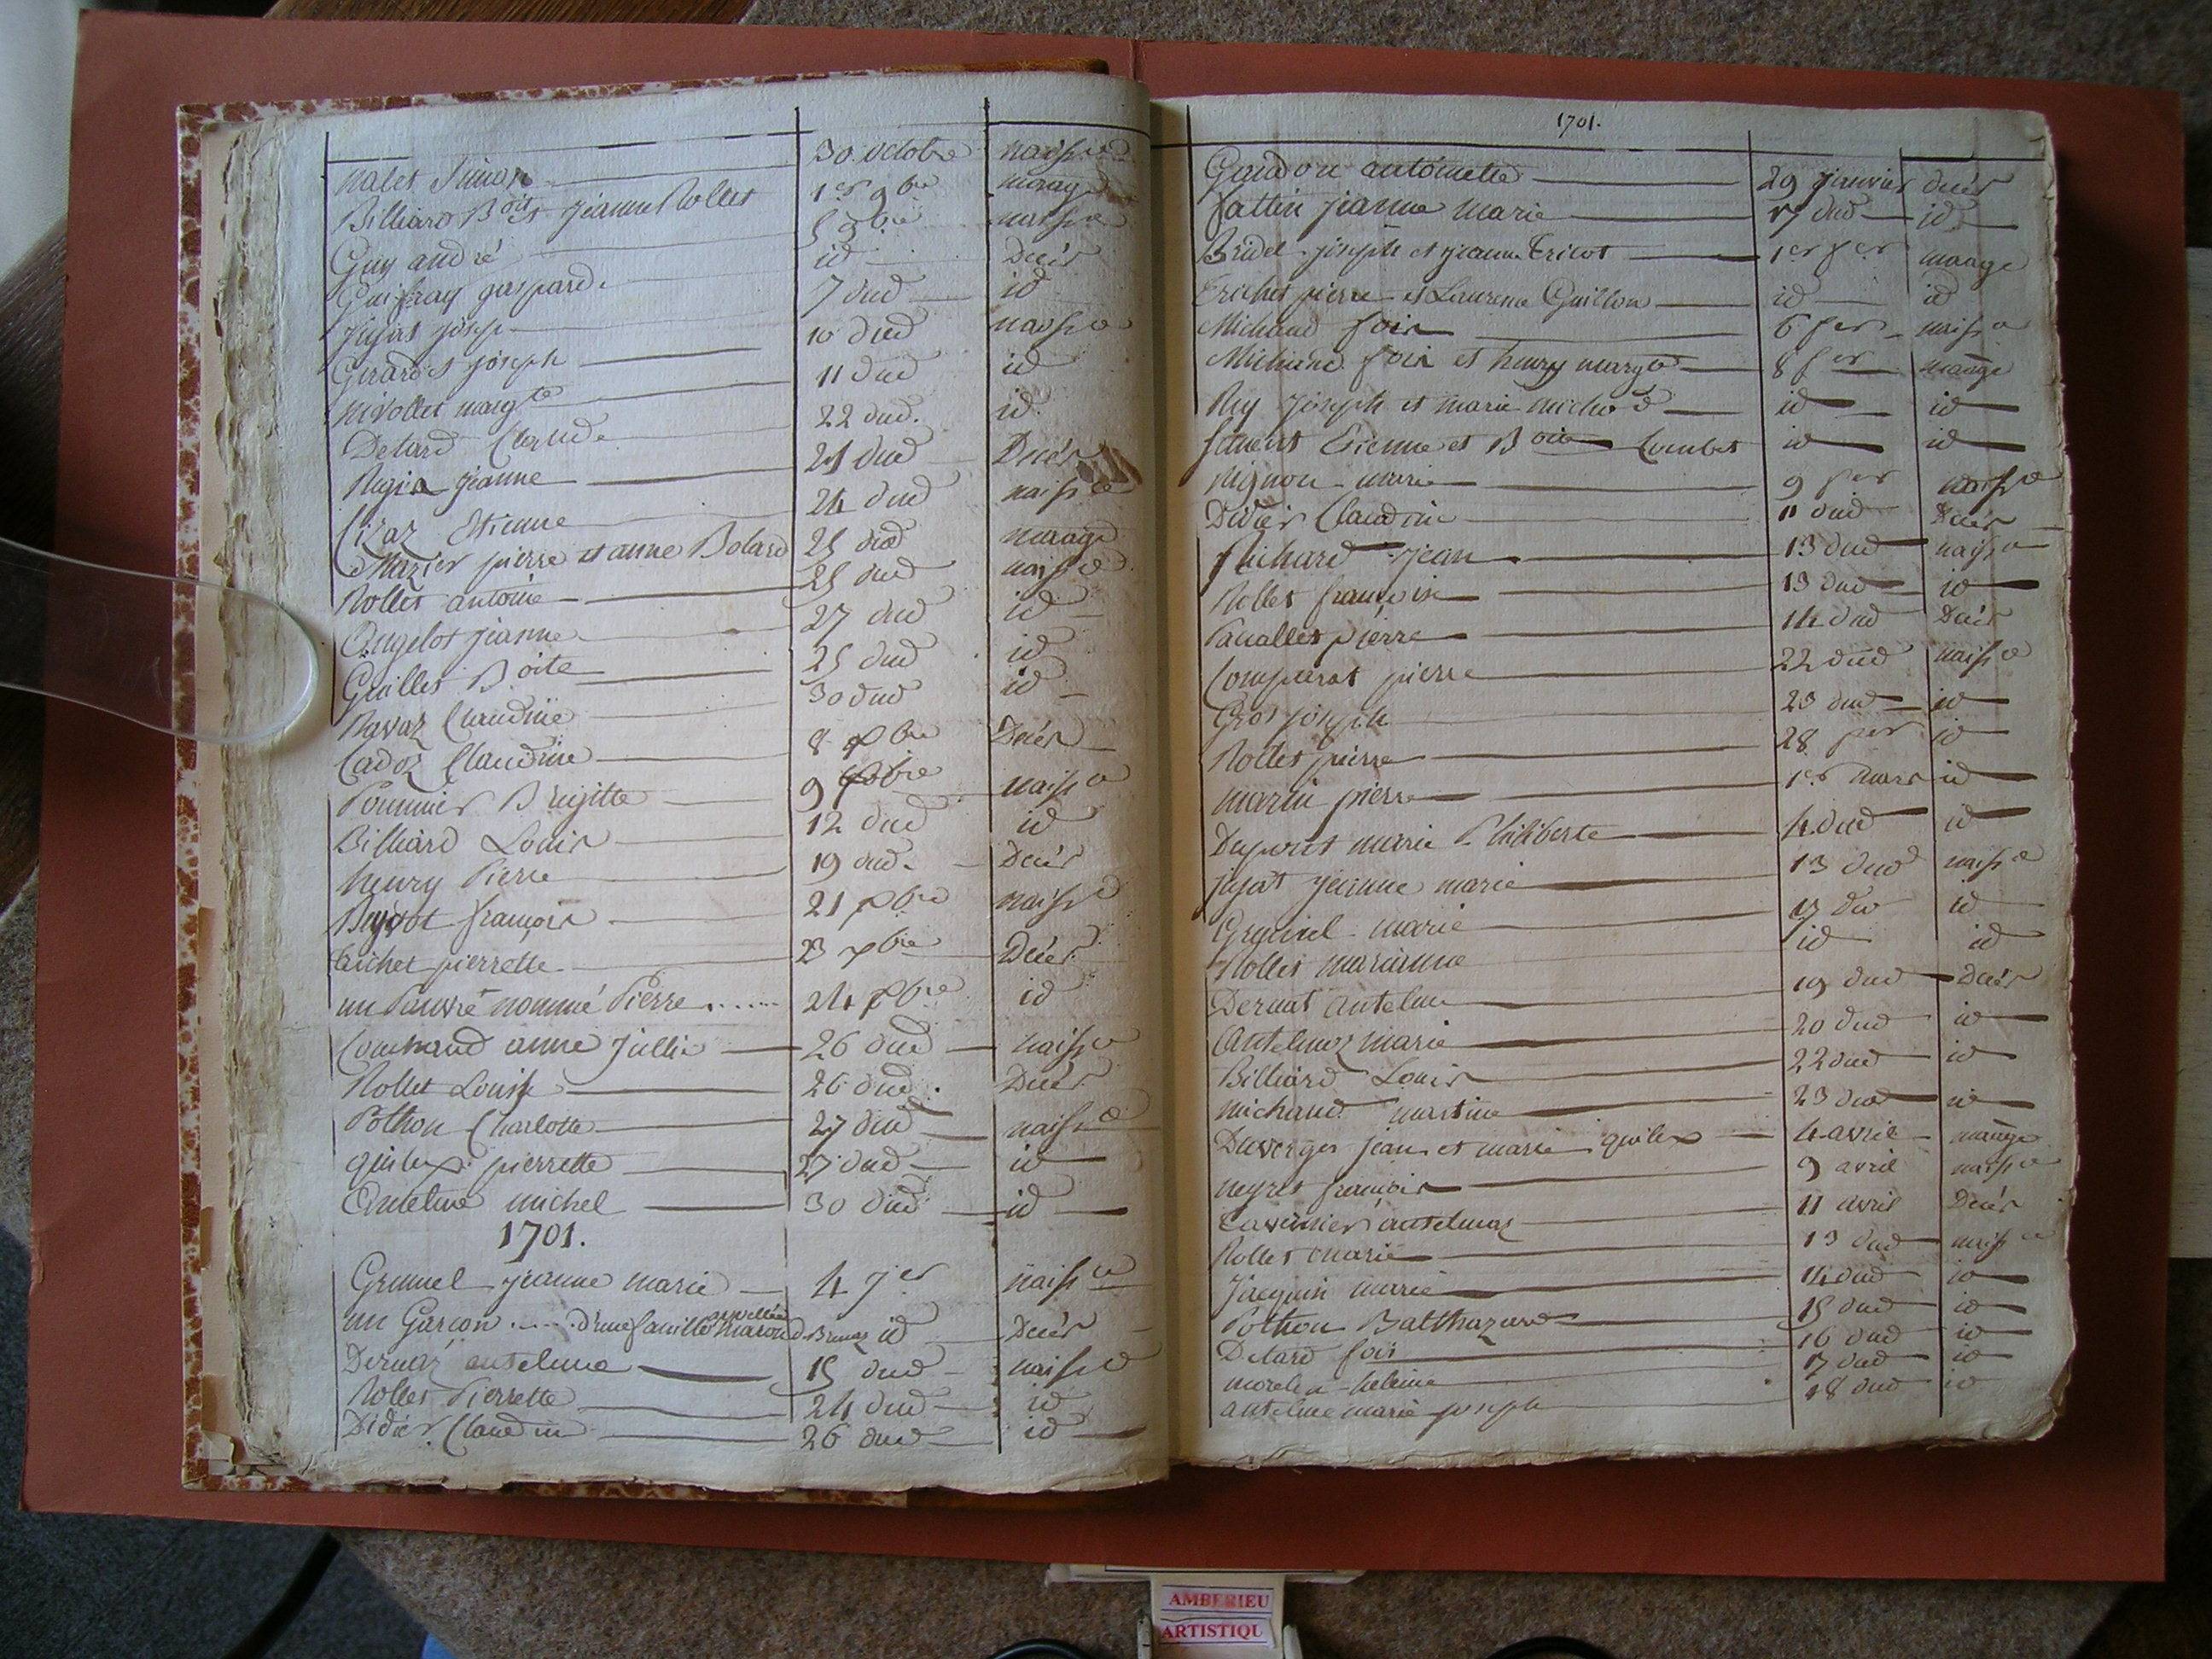 nalet Simon 30 octobre naiss ce
Billiard B oit et Jeanne Rollet 1er 9bre mariage
Guy andré 5 9bre naiss ce
Guifray gaspard id Décès
Jujat joseph 7 dud id
Girardet joseph 10 dud naiss ce
nivollet marg te 11 dud id
Delard Claude 22 dud. id
jeanne 21 dud Décès
Cizaz Etienne 24 dud naiss ce
pierre et anne Bolard 25 dud mariage
Rollet antoine 25 dud naiss ce
Angelot jeanne 27 dud id
Guillet B oite 25 dud id
Ravaz Claudine 30 dud id
Cadoz Claudine 8 xbre Décès
Pommier Brigitte 9 xbre naiss ce
Billiard Louis 12 dud id
henry Pierre 19 dud. Décès
françois 21 xbre naiss ce
pierrette 23 xbre Décès
un Pauvre nommé Pierre ...... 24 xbre id
anne Jullie 26 dud naiss ce
Rollet Louise 26 dud. Décès
Pothon Charlotte 27 dud naiss ce
quilex pierrette 27 dud id
Anteline michel 30 dud id
1701.
Grumel jeanne marie 4 jer naiss ce
un Garçon ..... d'une famille id Décès
Dernaz antelme 15 dud naiss ce
Rollet Pierrette 24 dud id
Didier Claudine 26 dud id
1701.
Gaudon antoinette 29 janvier décès
Jattin jeanne marie 17 dud id
Bridel joseph et jeanne Tricot 1er fer mariage
Trichet pierre et Laurence Guillon id id
Michaud fois 6 fer naiss ce
Michaud fois et henry margte 8 fer mariage
Rey Joseph et marie michod id id
Etienne et B oite Combet id id
nignon marie 9 fer naiss ce
Didier Claudine 11 dud Décès
Richard Jean 13 dud naiss ce
Rollet françoise 13 dud id
pierre 14 dud Décès
Comparat pierre 22 dud naiss ce
Gros joseph 23 dud id
Rollet pierre 28 fer id
martin pierre 1er mars id
Dupont marie Philiberte 4 dud id
Jujat jeanne marie 13 dud naiss ce
Grumel marie 17 dud id
Rollet marianne id id
Dernat antelme 19 dud Décès
Antelmoz marie 20 dud id
Billiard Louis 22 dud id
michaud martine 23 dud id
Duverger jean et marie quilex 4 avril mariage
neyret françois 9 avril naiss ce
antelmaz 11 avril Décès
Rollet marie 13 dud naiss ce
Jacquin marie 14 dud id
Pothon Balthazard 15 dud id
Delard fois 16 dud id
morelin heleine 17 dud id
anteline marie joseph 18 dud id
AMBERIEU
ARTISTIQU